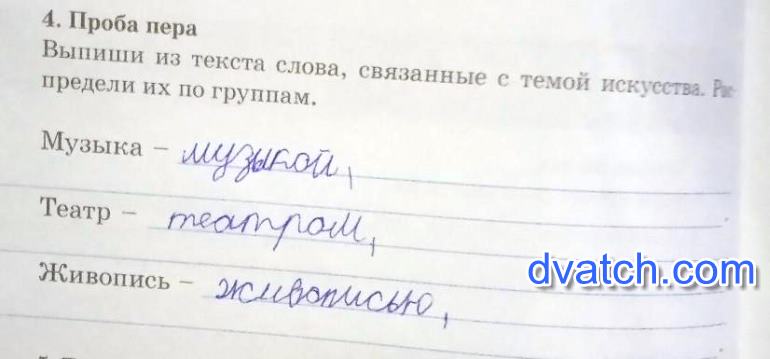 4. Проба пера
Выпиши из текста слова, связанные с темой искусства. Рас-
предели их по группам.
Музыка – музыкой,
Театр – театром,
Живопись – живописью,
dvatch.com